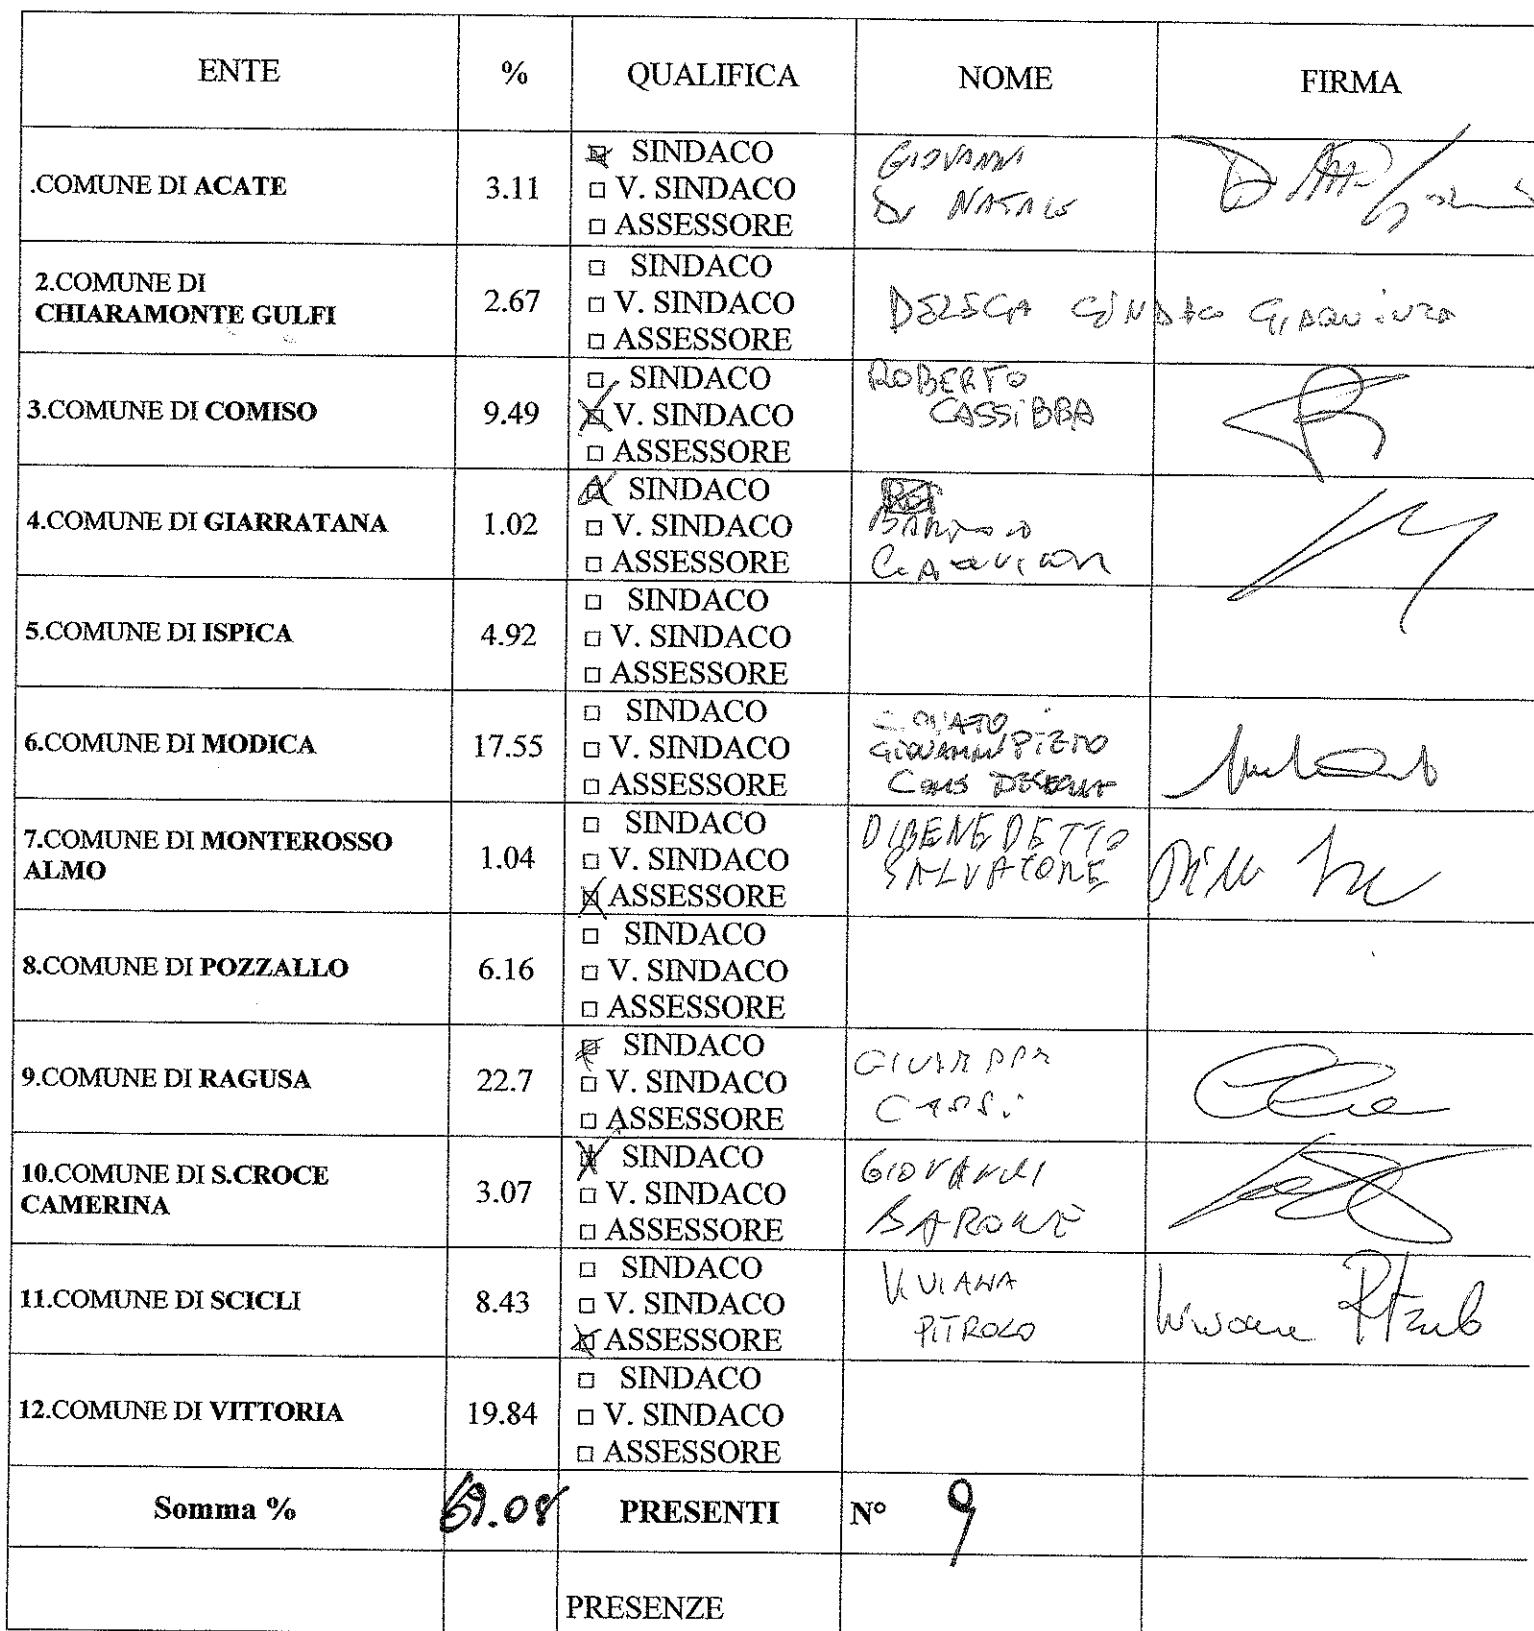 ENTE % QUALIFICA NOME FIRMA
.COMUNE DI ACATE 3.11
SINDACO
□ V. SINDACO
□ ASSESSORE
GIOVANNI
DI NATALE
2.COMUNE DI
CHIARAMONTE GULFI
2.67
□ SINDACO
□ V. SINDACO
□ ASSESSORE
DELEGA SINDACO GIAQUINTA
3.COMUNE DI COMISO 9.49
□ SINDACO
V. SINDACO
□ ASSESSORE
ROBERTO
CASSIBBA
4.COMUNE DI GIARRATANA 1.02
SINDACO
□ V. SINDACO
□ ASSESSORE
5.COMUNE DI ISPICA 4.92
□ SINDACO
□ V. SINDACO
□ ASSESSORE
6.COMUNE DI MODICA 17.55
□ SINDACO
□ V. SINDACO
□ ASSESSORE
7.COMUNE DI MONTEROSSO
ALMO
1.04
□ SINDACO
□ V. SINDACO
ASSESSORE
DIBENEDETTO
SALVATORE
8.COMUNE DI POZZALLO 6.16
□ SINDACO
□ V. SINDACO
□ ASSESSORE
9.COMUNE DI RAGUSA 22.7
SINDACO
□ V. SINDACO
□ ASSESSORE
GIUSEPPE
CASSI
10.COMUNE DI S.CROCE
CAMERINA
3.07
SINDACO
□ V. SINDACO
□ ASSESSORE
GIOVANNI
BARONE
11.COMUNE DI SCICLI 8.43
□ SINDACO
□ V. SINDACO
ASSESSORE
VIVIANA
PITROLO
12.COMUNE DI VITTORIA 19.84
□ SINDACO
□ V. SINDACO
□ ASSESSORE
Somma % 69.08 PRESENTI N° 9
PRESENZE